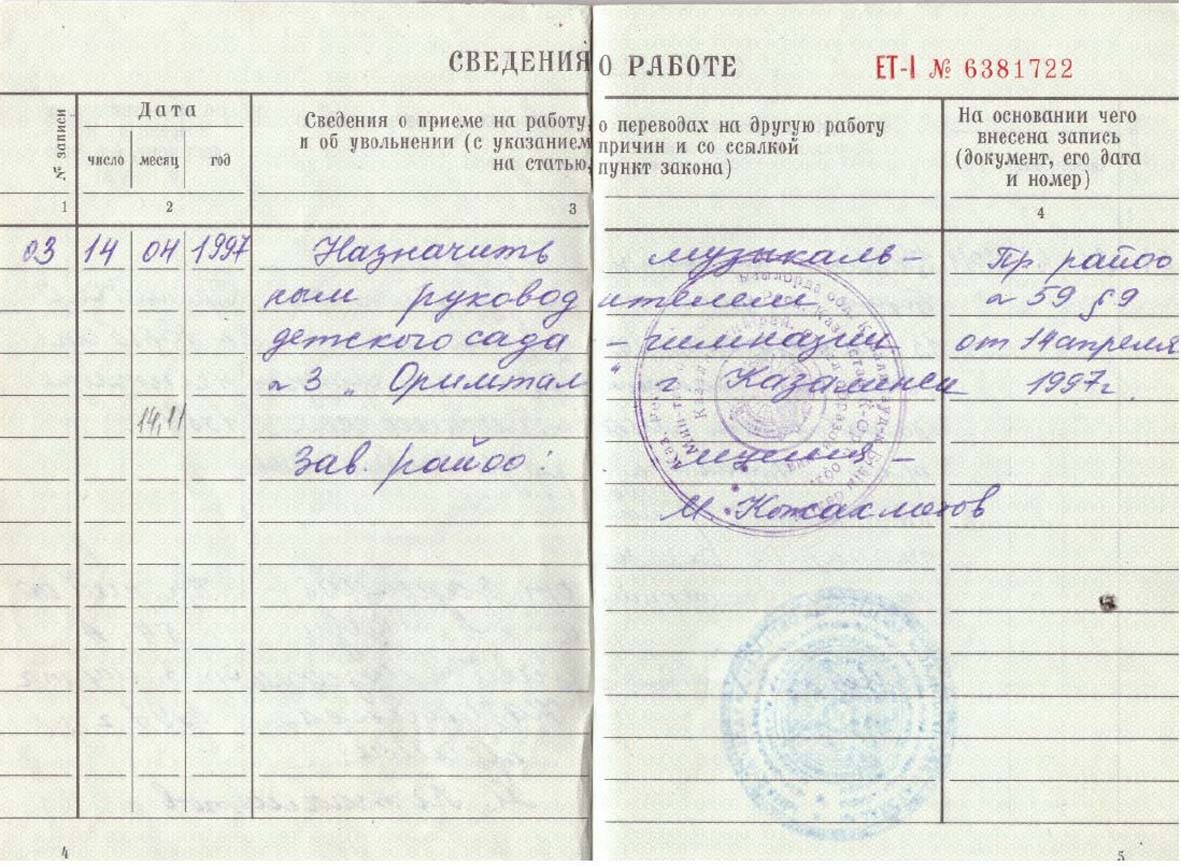 СВЕДЕНИЯ О РАБОТЕ ЕТ-I № 6381722
№ записи
Дата
число месяц год
Сведения о приеме на работу, о переводах на другую работу
и об увольнении (с указанием причин и со ссылкой
на статью, пункт закона)
На основании чего
внесена запись
(документ, его дата
и номер)
1 2 3 4
03 14 04 1997 Назначить музыкаль- Пр. райоо
ным руководителем № 59 §9
детского сада - гимназии от 14 апреля
№ 3 „ Оримтал " г. Казалинск 1997г.
14,11
Зав. райоо:
М. Кожахметов
4 5